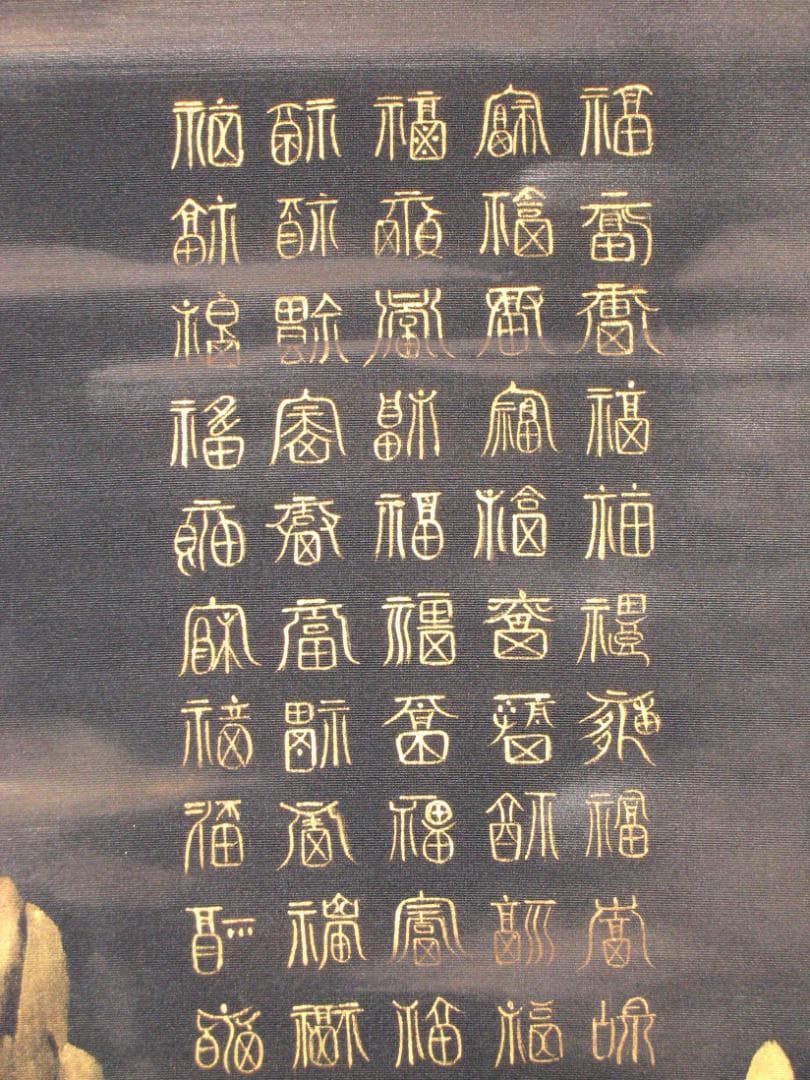 福福福福福福福福福福
福福福福福福福福福福
福福福福福福福福福福
福福福福福福福福福福
福福福福福福福福福福